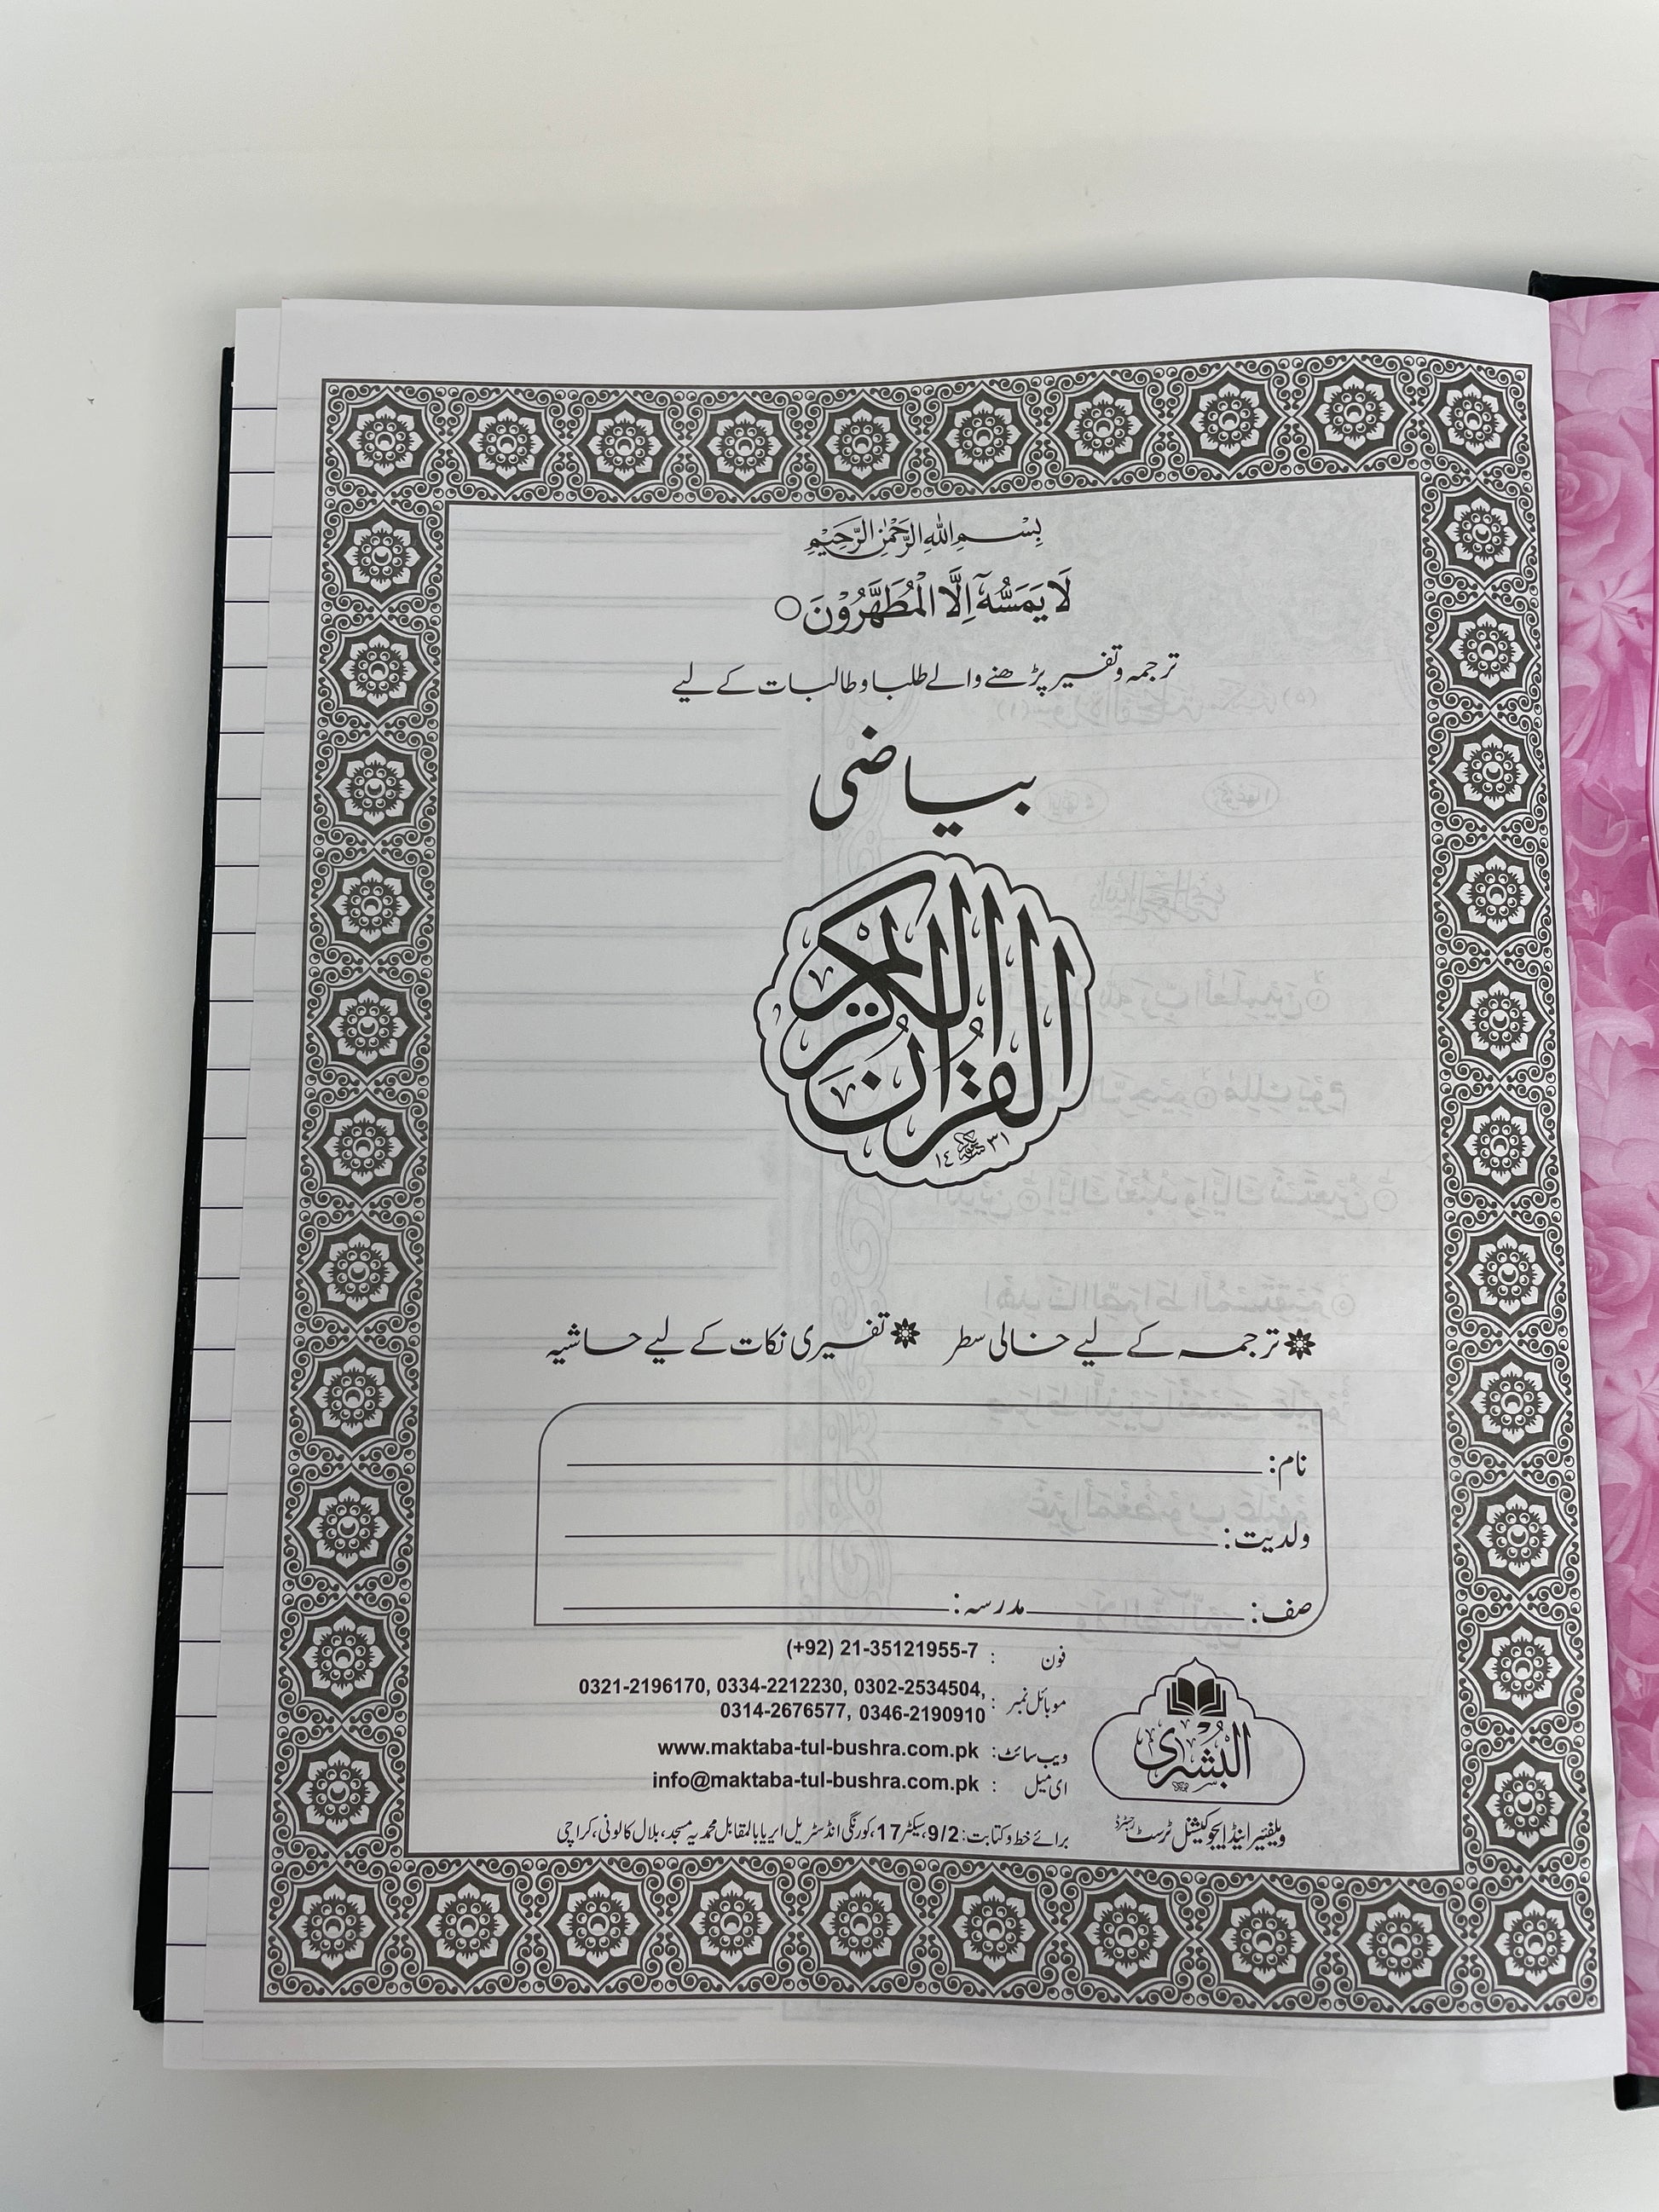 بِسْمِ اللهِ الرَّحْمٰنِ الرَّحِيْمِ
لَا يَمَسُّهٗۤ اِلَّا الْمُطَهَّرُوْنَ ○
ترجمہ و تفسیر پڑھنے والے طلبا و طالبات کے لیے
بیاضی
القرآن الکریم
١٤٣١
ترجمہ کے لیے خالی سطر تفسیری نکات کے لیے حاشیہ
نام:
ولدیت:
صف: مدرسہ:
فون : (+92) 21-35121955-7
موبائل نمبر : 0321-2196170, 0334-2212230, 0302-2534504,
0314-2676577, 0346-2190910
ویب سائٹ: www.maktaba-tul-bushra.com.pk
ای میل : info@maktaba-tul-bushra.com.pk
البشری
ویلفیئر اینڈ ایجوکیشنل ٹرسٹ رجسٹرڈ
برائے خط و کتابت: 9/2، سیکٹر 17، کورنگی انڈسٹریل ایریا بالمقابل محمدیہ مسجد، بلال کالونی، کراچی